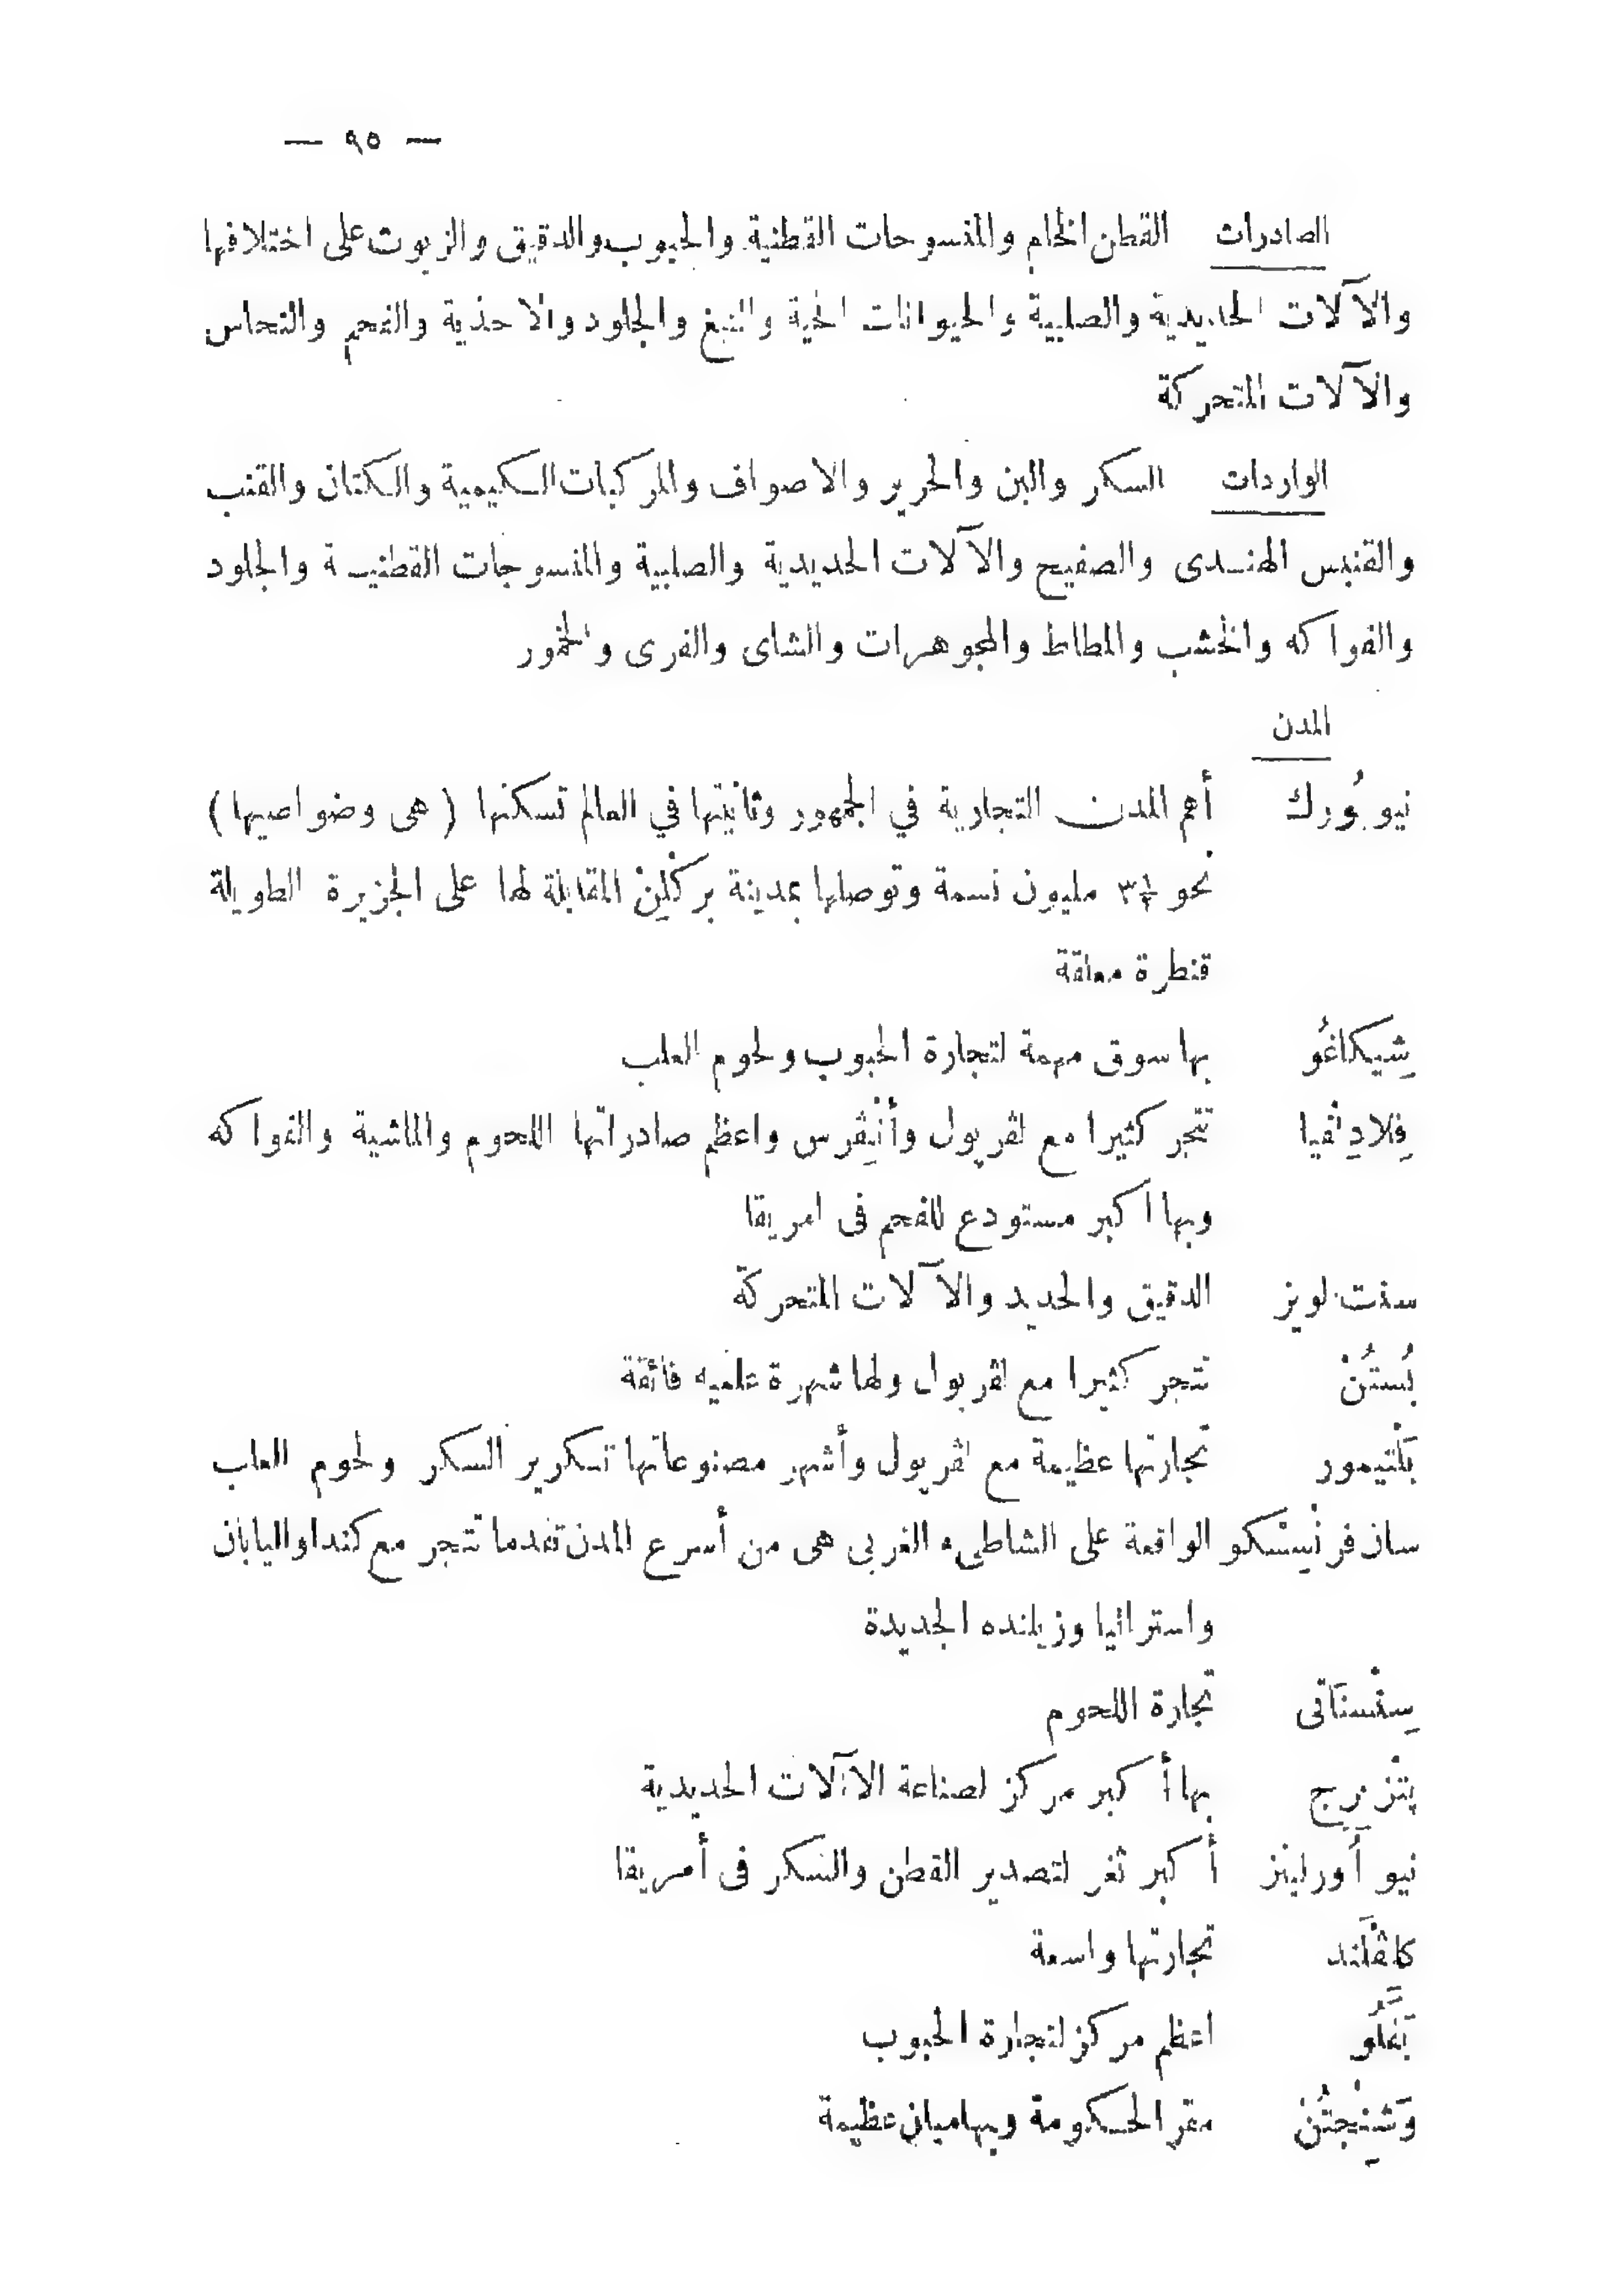 — ٩٥ —
الصادرات القطن الخام والمنسوجات القطنية والحبوب والدقيق والزيوت على اختلافها
والآلات الحديدية والصلبية والحيوانات الحية والتبغ والجلود والاحذية والفحم والنحاس
والآلات المتحركة
الواردات السكر والبن والحرير والاصواف والمركبات الكيمية والكتان والقنب
والقنبس الهندى والصفيح والآلات الحديدية والصلبية والمنسوجات القطنية والجلود
والفواكه والخشب والمطاط والمجوهرات والشاى والفرى والخمور
المدن
نيويُورك أهم المدن التجارية في الجمهور وثانيتها في العالم تسكنها ( هى وضواحيها )
نحو ٣½ مليون نسمة وتوصلها بمدينة بركْلِنْ المقابلة لها على الجزيرة الطويلة
قنطرة معلقة
شِيكاغُو بها سوق مهمة لتجارة الحبوب ولحوم العلب
فِلادِلْفيا تتجر كثيرا مع لڤربول وأنْتِڤرس واعظم صادراتها اللحوم والماشية والفواكه
وبها اكبر مستودع للفحم فى امريقا
سنت لويز الدقيق والحديد والآلات المتحركة
بُستُنْ تتجر كثيرا مع لڤربول ولها شهرة علميه فائقة
بَلْتيمور تجارتها عظيمة مع لڤربول وأشهر مصنوعاتها تسكرير السكر ولحوم العلب
سان فرنْسِسْكو الواقعة على الشاطىء الغربى هى من أسرع المدن تقدما تتجر مع كندا واليابان
واستراليا وزيلنده الجديدة
سِنْسنَاتى تجارة اللحوم
پتْزبرج بها أكبر مركز لصناعة الآلات الحديدية
نيو أُورلينز أكبر ثغر لتصدير القطن والسكر فى أمريقا
كلڤلَند تجارتها واسعة
بَفَلُو اعظم مركز لتجارة الحبوب
وَشِنْجتُنْ مقر الحكومة وبها مبان عظيمة